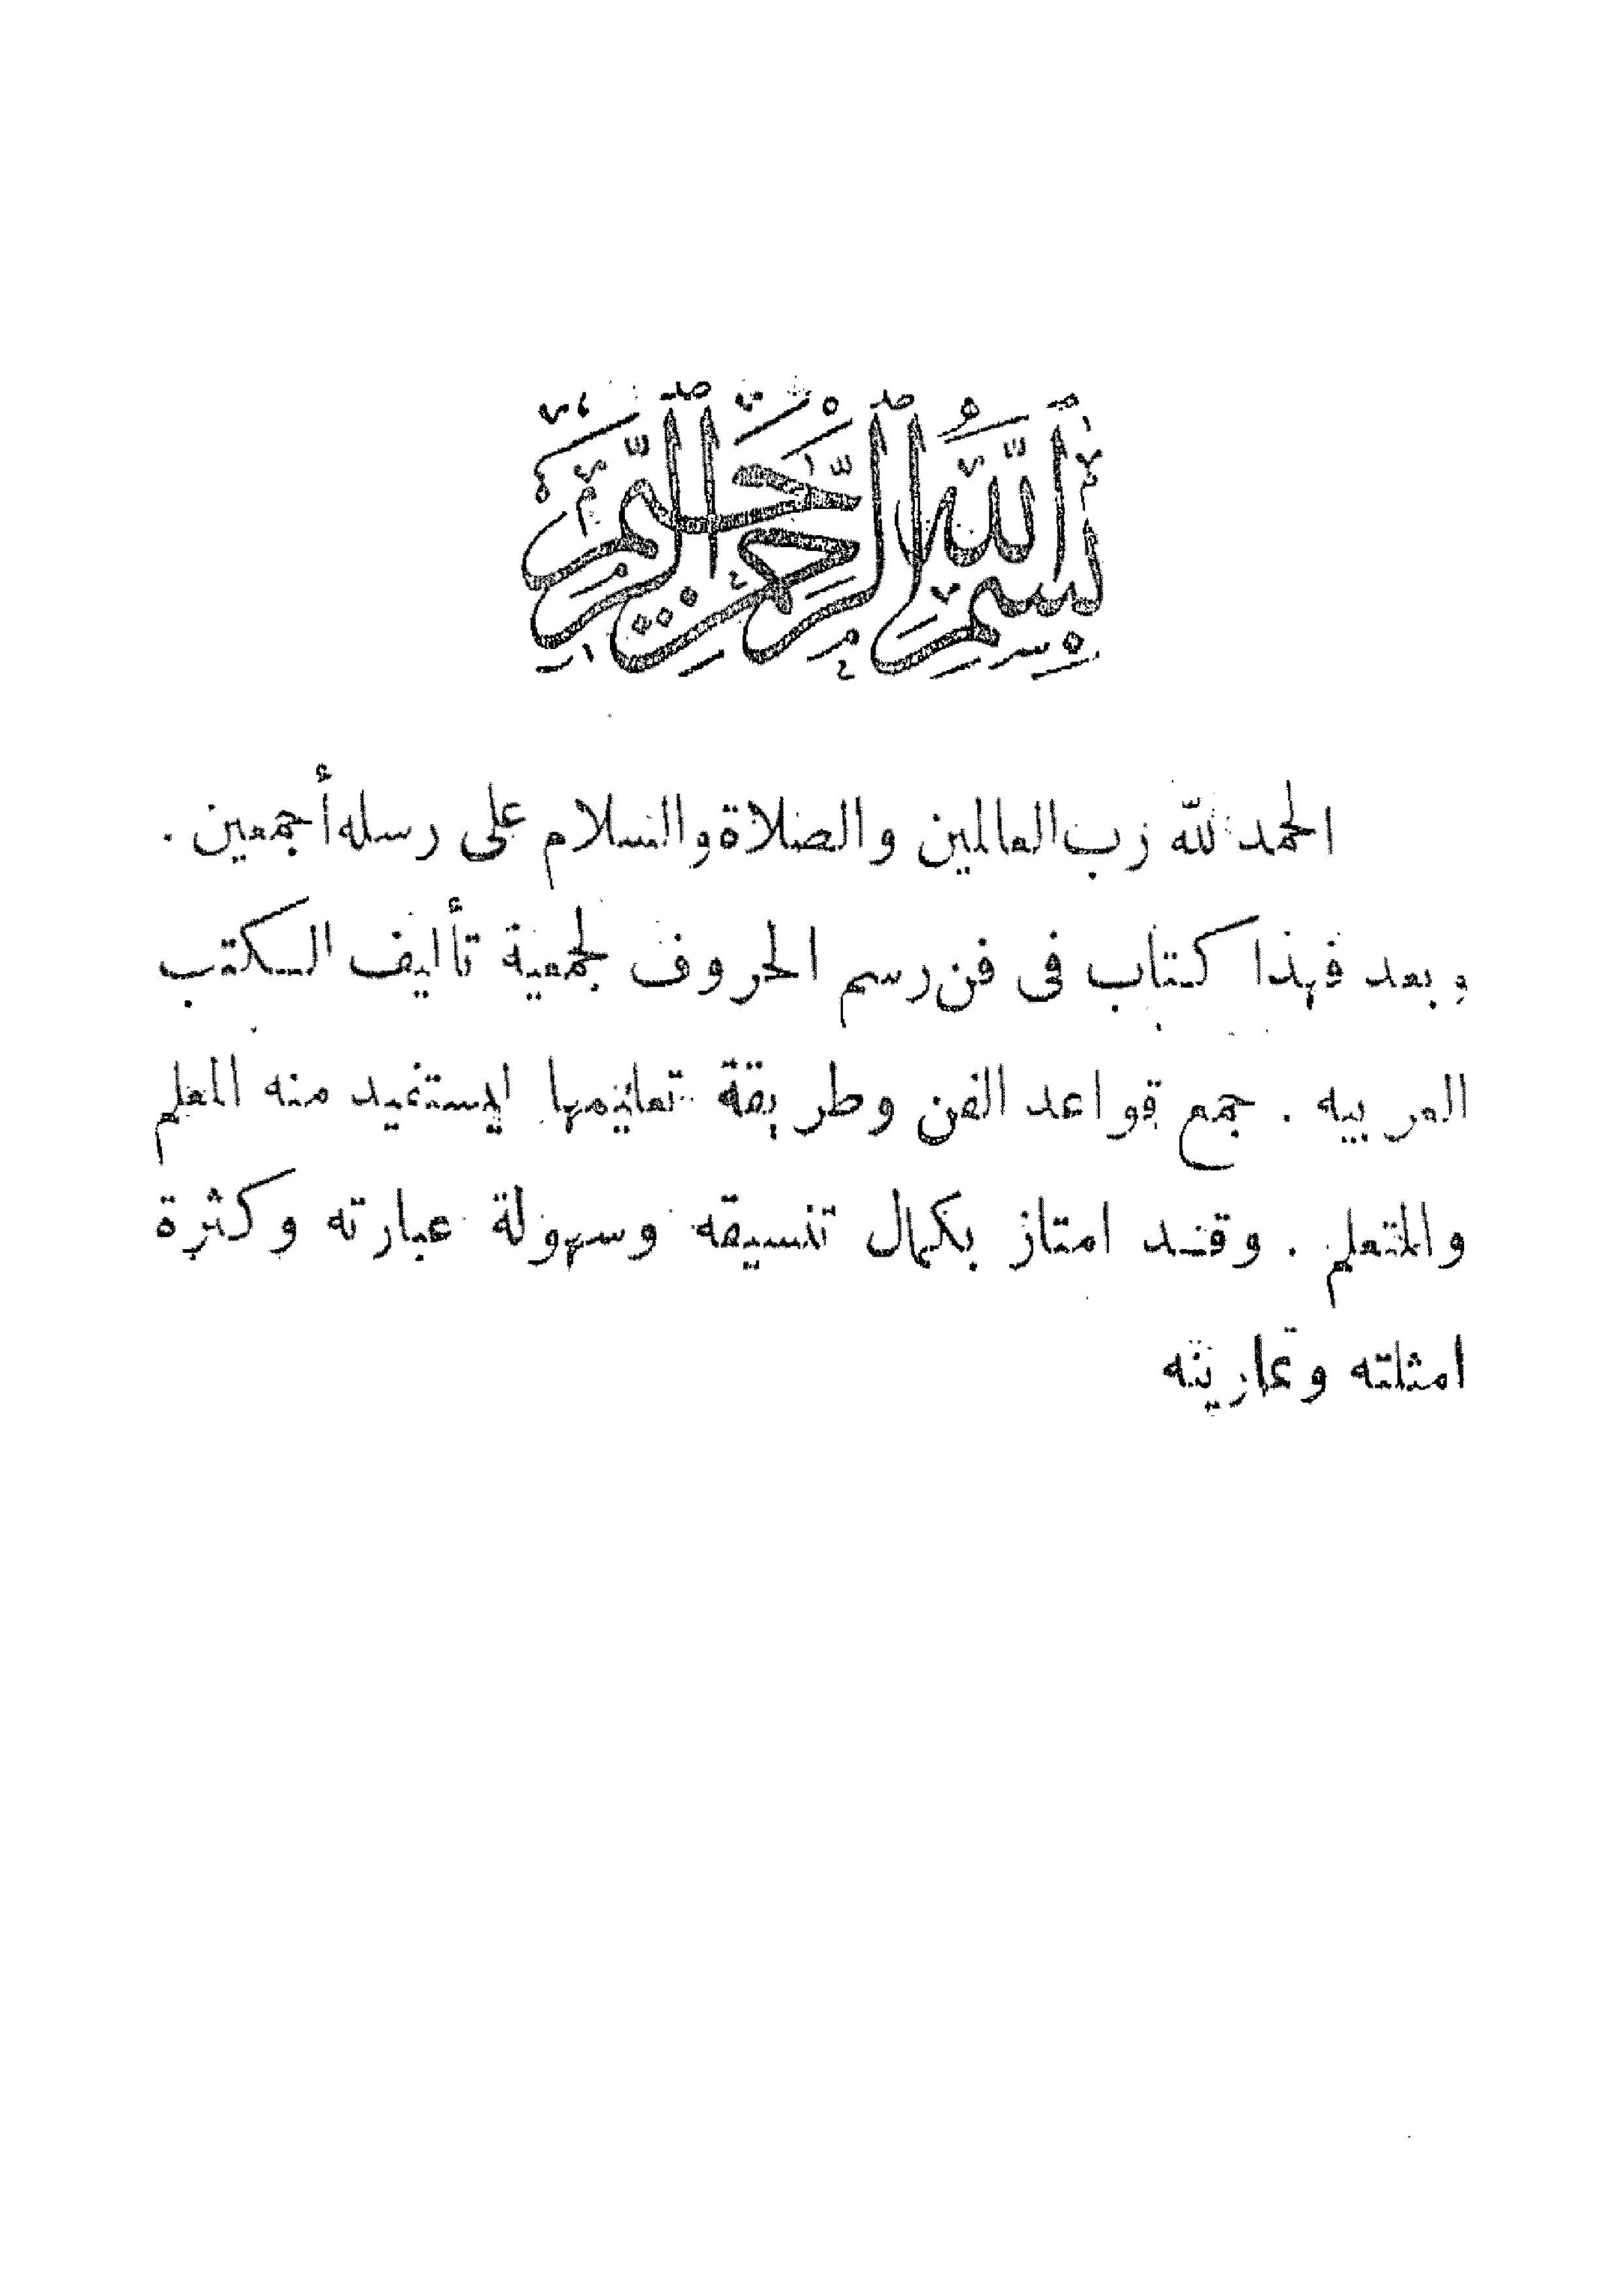 بسم الله الرحمن الرحيم
الحمد لله رب العالمين والصلاة والسلام على رسله أجمعين .
وبعد فهذا كتاب فى فن رسم الحروف لجمعية تأليف الكتب
العربيه . جمع قواعد الفن وطريقة تعليمها ليستفيد منه المعلم
والمتعلم . وقد امتاز بكمال تنسيقه وسهولة عبارته وكثرة
امثلته وتمارينه